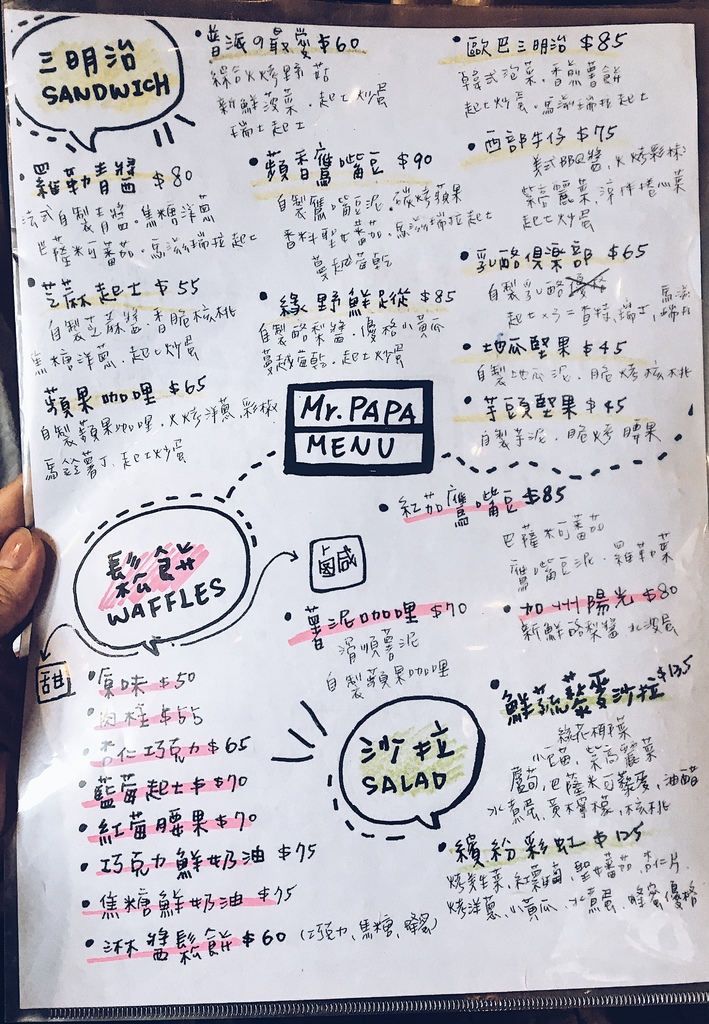 三明治
SANDWICH
普派の最愛 $60
綜合火烤野菇
新鮮菠菜．起士炒蛋
瑞士起士
歐巴三明治 $85
韓式泡菜．香煎薯餅
起士炒蛋．馬滋瑞拉起士
羅勒青醬 $80
法式自製青醬．焦糖洋蔥
巴薩米可番茄．馬滋瑞拉起士
蘋香鷹嘴豆 $90
自製鷹嘴豆泥．碳烤蘋果
香料聖女番茄．馬滋瑞拉起士
蔓越莓乾
西部牛仔 $75
美式BBQ醬，火烤彩椒
紫高麗菜，涼拌捲心菜
起士炒蛋
芝麻起士 $55
自製芝麻醬．香脆核桃
焦糖洋蔥．起士炒蛋
綠野鮮蹤 $85
自製酪梨醬．優格小黃瓜
蔓越莓乾．起士炒蛋
乳酪俱楽部 $65
自製乳酪
起士x3=香特，瑞士，馬滋瑞拉
地瓜堅果 $45
自製地瓜泥．脆烤核桃
芋頭堅果 $45
自製芋泥．脆烤腰果
蘋果咖哩 $65
自製蘋果咖哩．火烤洋蔥，彩椒
馬鈴薯丁，起士炒蛋
Mr. PAPA
MENU
鬆餅
WAFFLES
鹹
紅茄鷹嘴豆 $85
巴薩米可番茄
鷹嘴豆泥．羅勒葉
薯泥咖哩 $70
滑順薯泥
自製蘋果咖哩
加州陽光 $80
新鮮酪梨醬 水波蛋
甜
原味 $50
肉桂 $55
杏仁巧克力 $65
藍莓起士 $70
紅莓腰果 $70
巧克力鮮奶油 $75
焦糖鮮奶油 $75
淋醬鬆餅 $60（巧克力，焦糖，蜂蜜）
沙拉
SALAD
鮮蔬藜麥沙拉 $135
綠花椰菜
小苗，紫高麗菜
蘑菇，巴薩米可藜麥，油醋
水煮蛋，黃檸檬，核桃
繽紛彩虹 $125
烤洋蔥，小黃瓜，水煮蛋，蜂蜜優格